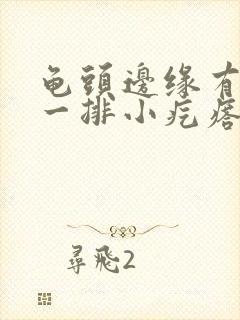 龟頭邊缘有
一排小疙瘩
尋飛2